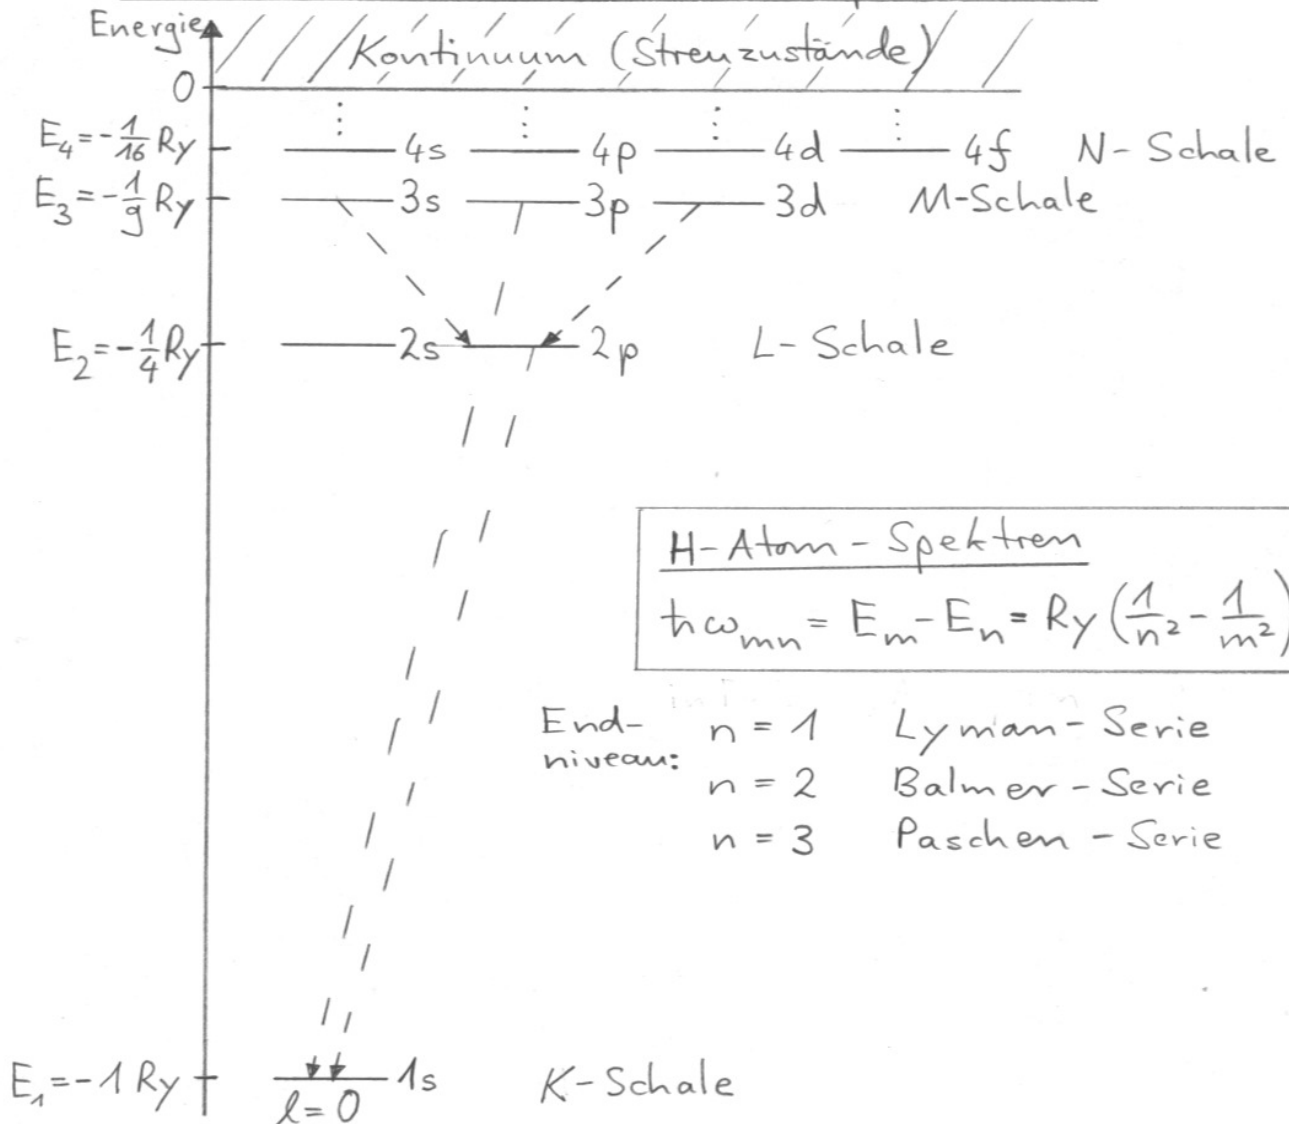 Energie
Kontinuum (Streuzustände)
0
E₄=-1/16 Ry 4s 4p 4d 4f N-Schale
E₃=-1/9 Ry 3s 3p 3d M-Schale
E₂=-1/4 Ry 2s 2p L-Schale
H-Atom-Spektren
ħω_mn = E_m - E_n = Ry (1/n² - 1/m²)
End- n = 1 Lyman-Serie
niveau: n = 2 Balmer-Serie
n = 3 Paschen-Serie
E₁=-1 Ry 1s K-Schale
l=0